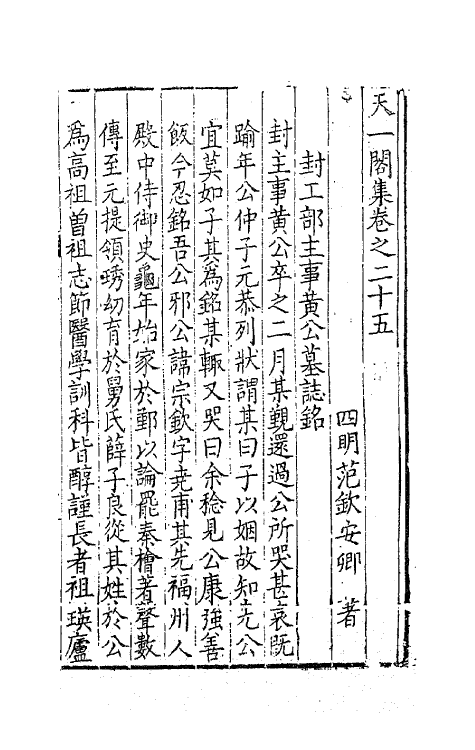 天一閣集卷之二十五
四明范欽安卿 著
封工部主事黃公墓誌銘
封主事黃公卒之二月某覲還過公所哭甚哀既
踰年公仲子元恭列狀謂某曰子以姻故知先公
宜莫如子其爲銘某輙又哭曰余稔見公康強善
飯今忍銘吾公邪公諱宗欽字堯甫其先福州人
殿中侍御史龜年始家於鄞以論罷秦檜著聲數
傳至元提領琇幼育於舅氏薛子良從其姓於公
爲高祖曽祖志節醫學訓科皆醇謹長者祖瑛廬